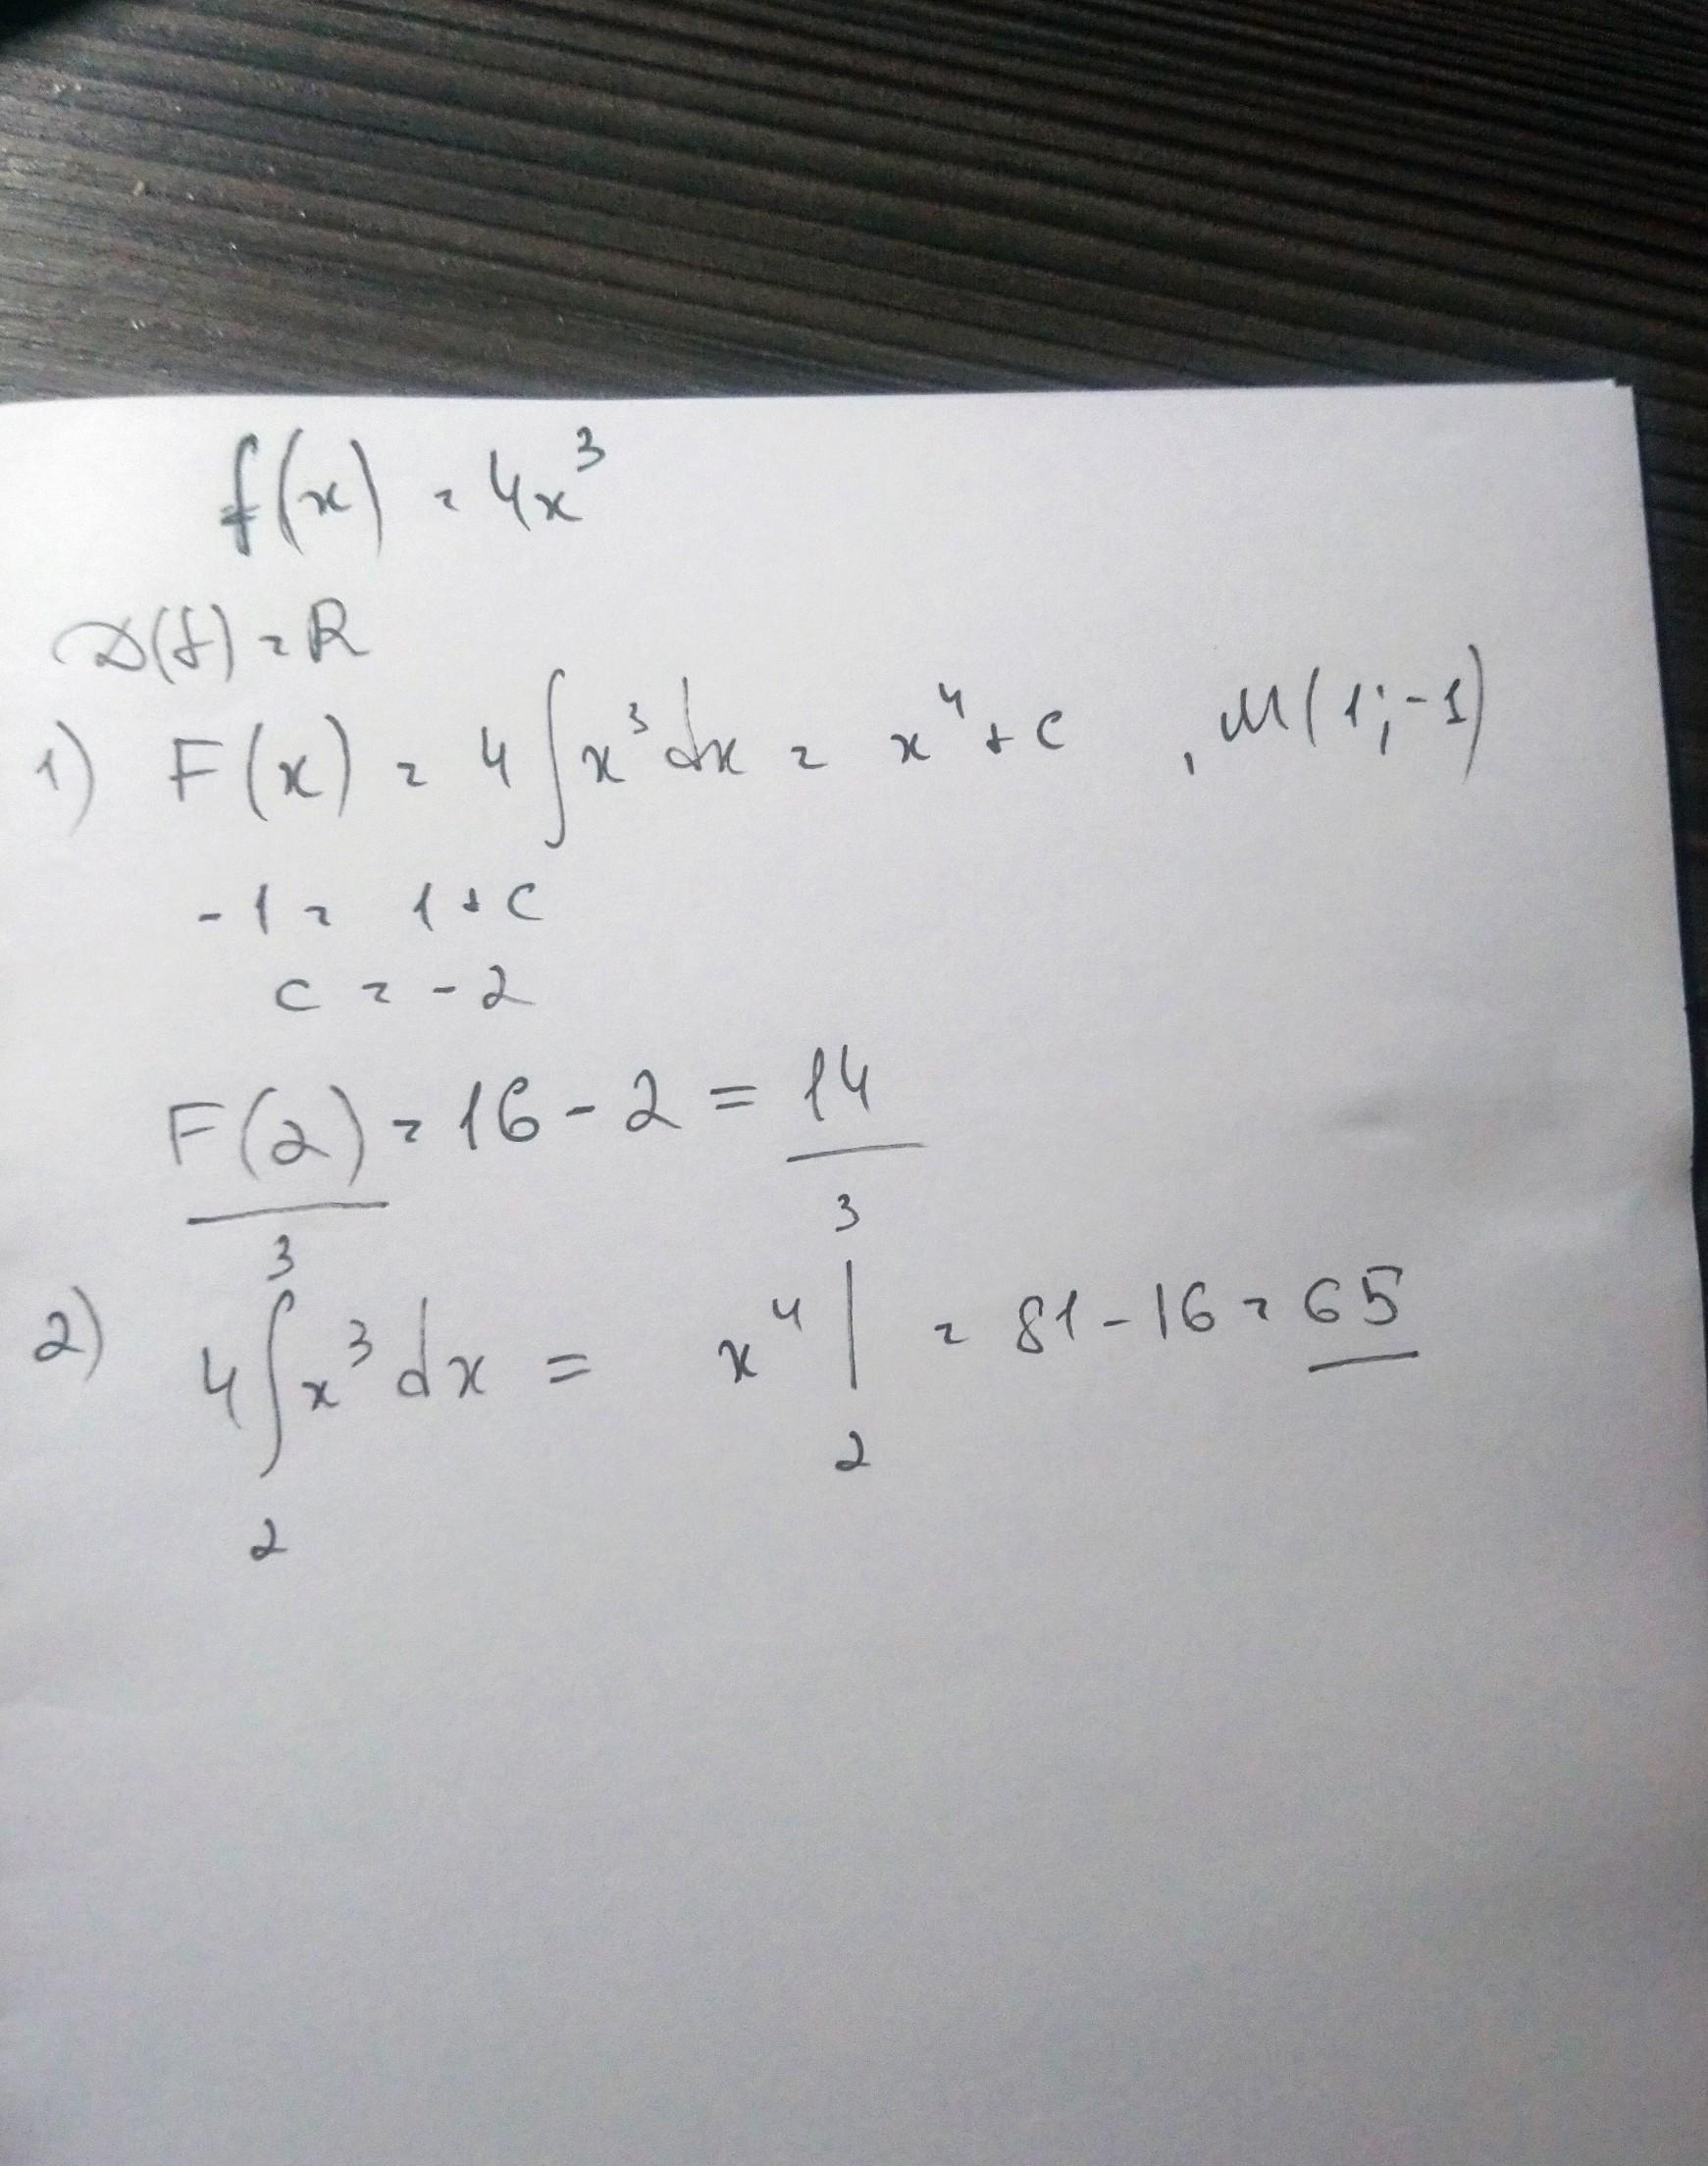 f(x) = 4x³
D(f) = R
1) F(x) = 4∫x³dx = x⁴ + c , M(1;-1)
-1 = 1 + c
c = -2
F(2) = 16 - 2 = 14
2) 4∫₂³x³dx = x⁴|₂³ = 81 - 16 = 65